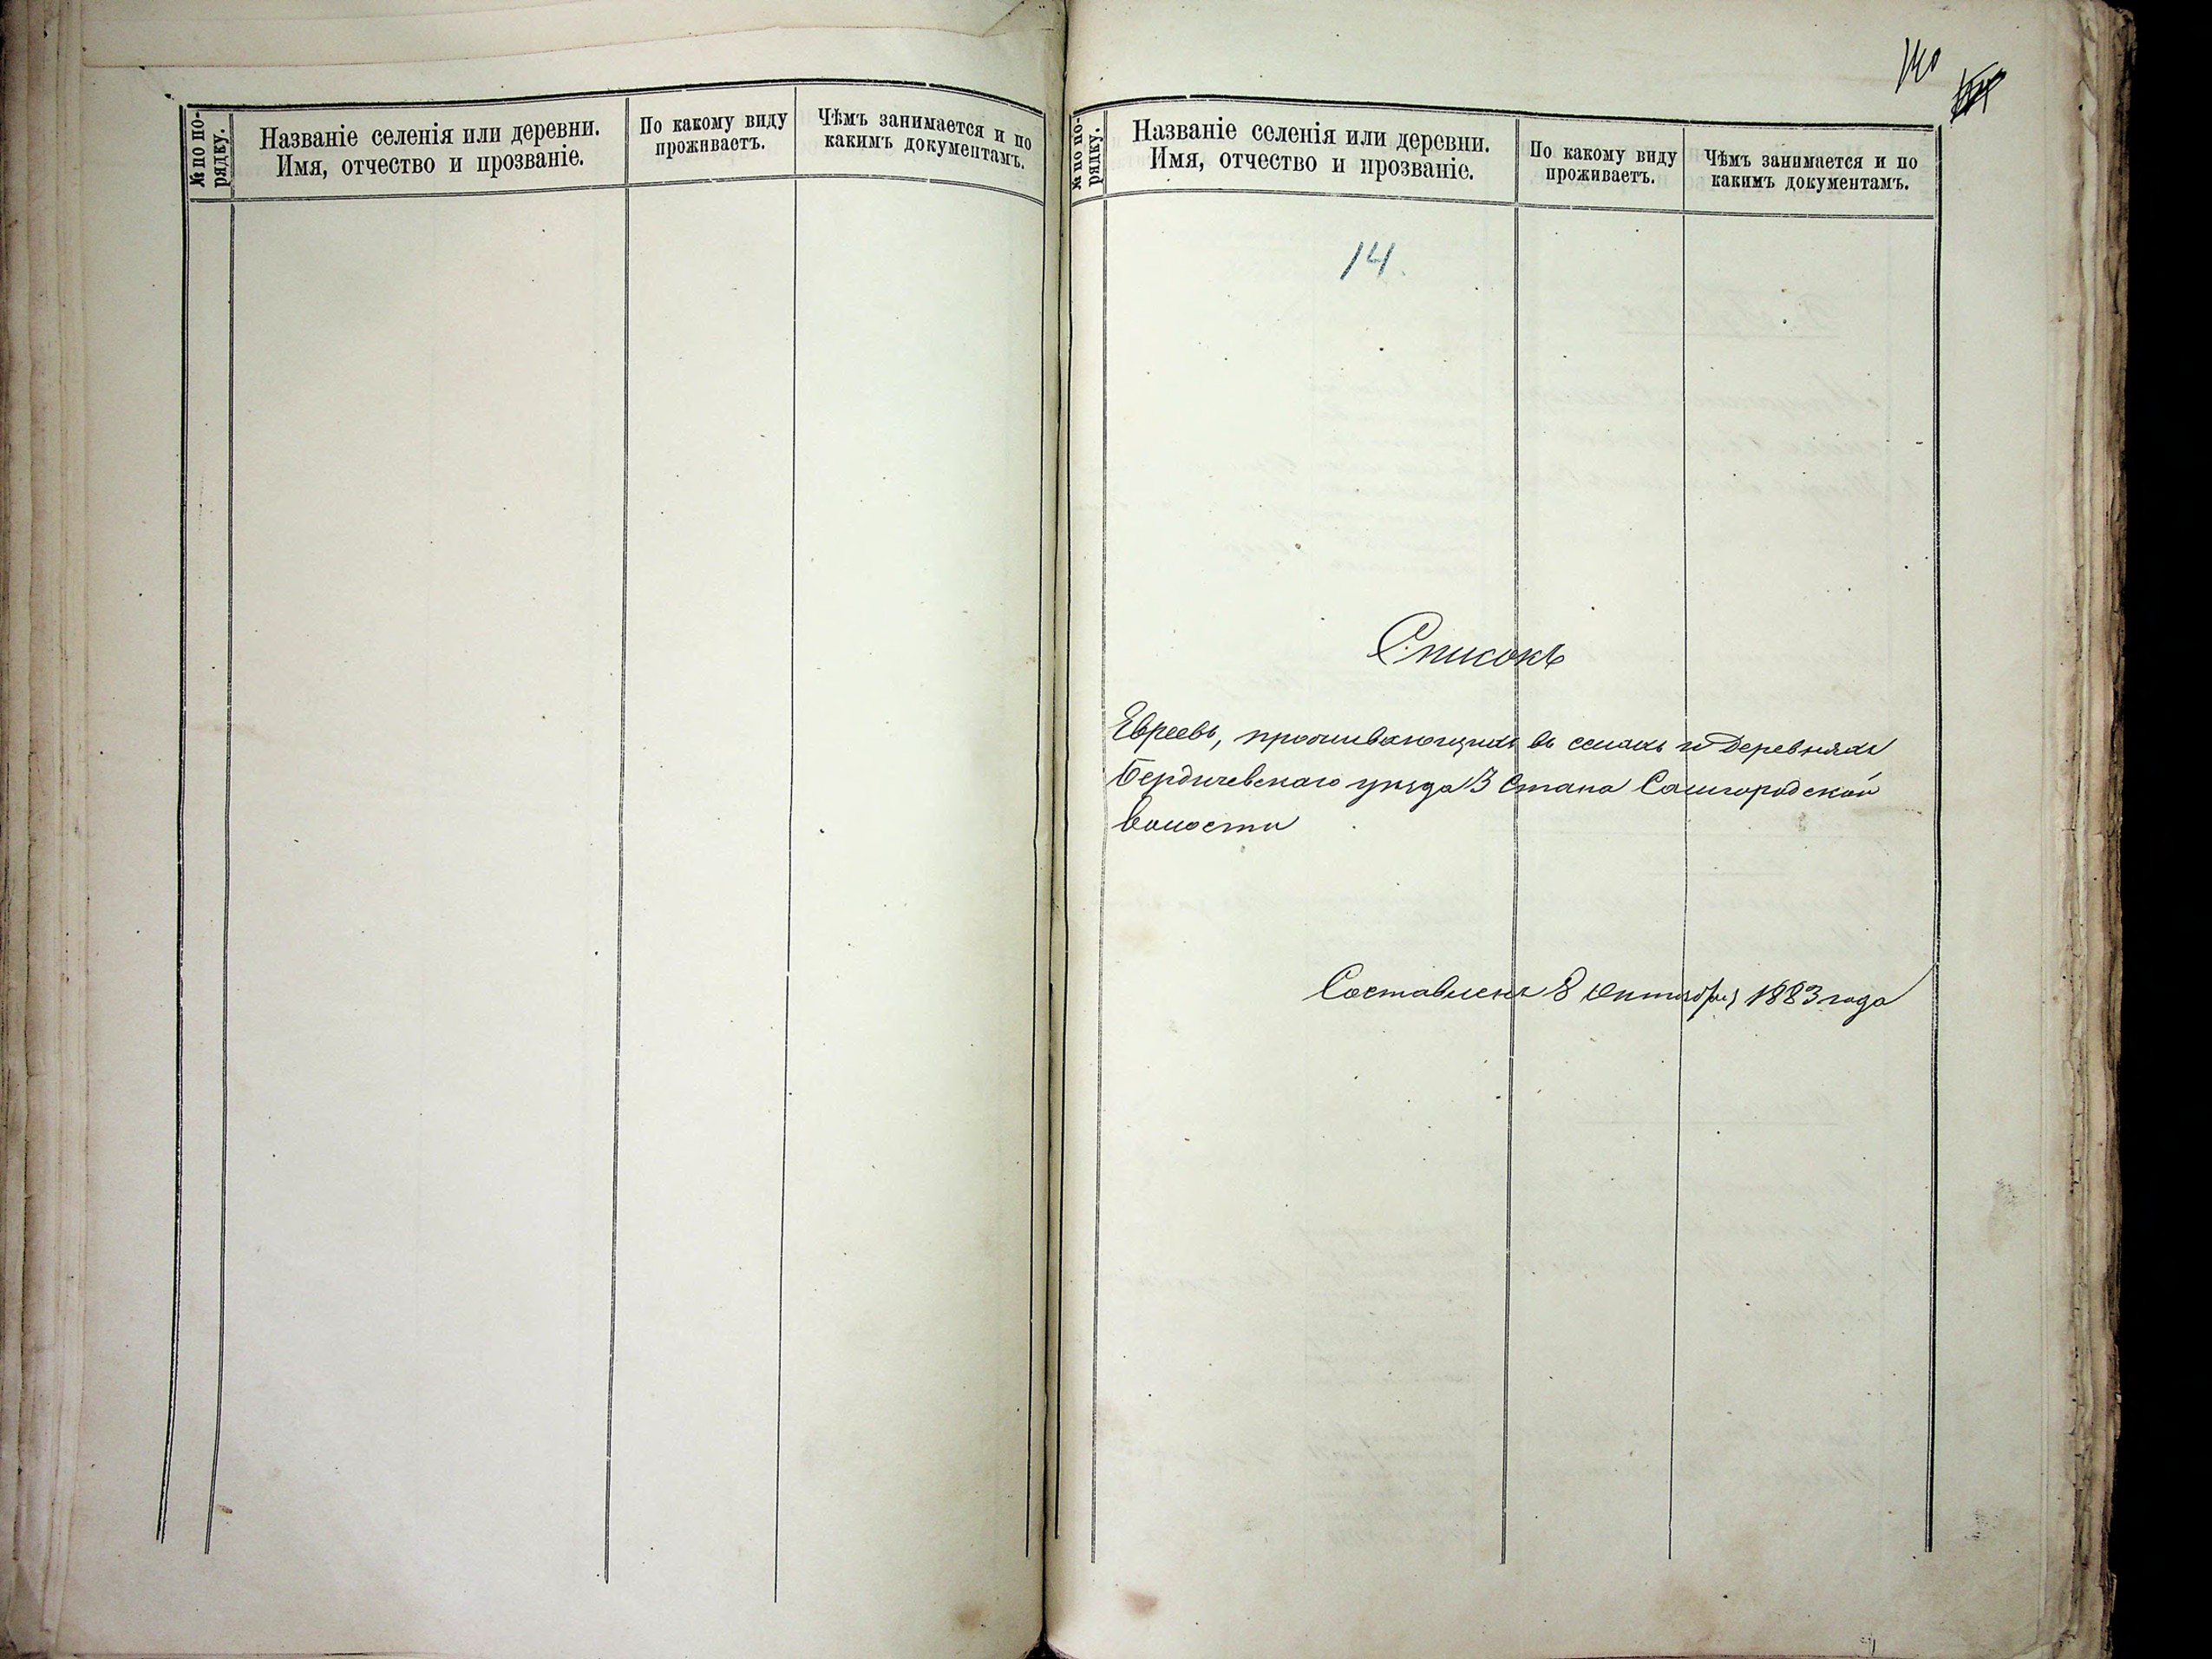 № по по-
рядку.
Названіе селенія или деревни.
Имя, отчество и прозваніе.
По какому виду
проживаетъ.
Чѣмъ занимается и по
какимъ документамъ.
140
№ по по-
рядку.
Названіе селенія или деревни.
Имя, отчество и прозваніе.
По какому виду
проживаетъ.
Чѣмъ занимается и по
какимъ документамъ.
14.
Списокъ
Евреевъ, проживающихъ въ селахъ и деревняхъ
Бердичевскаго уѣзда 3 Стана Самгородской
волости
Составленъ 8 Октября 1883 года